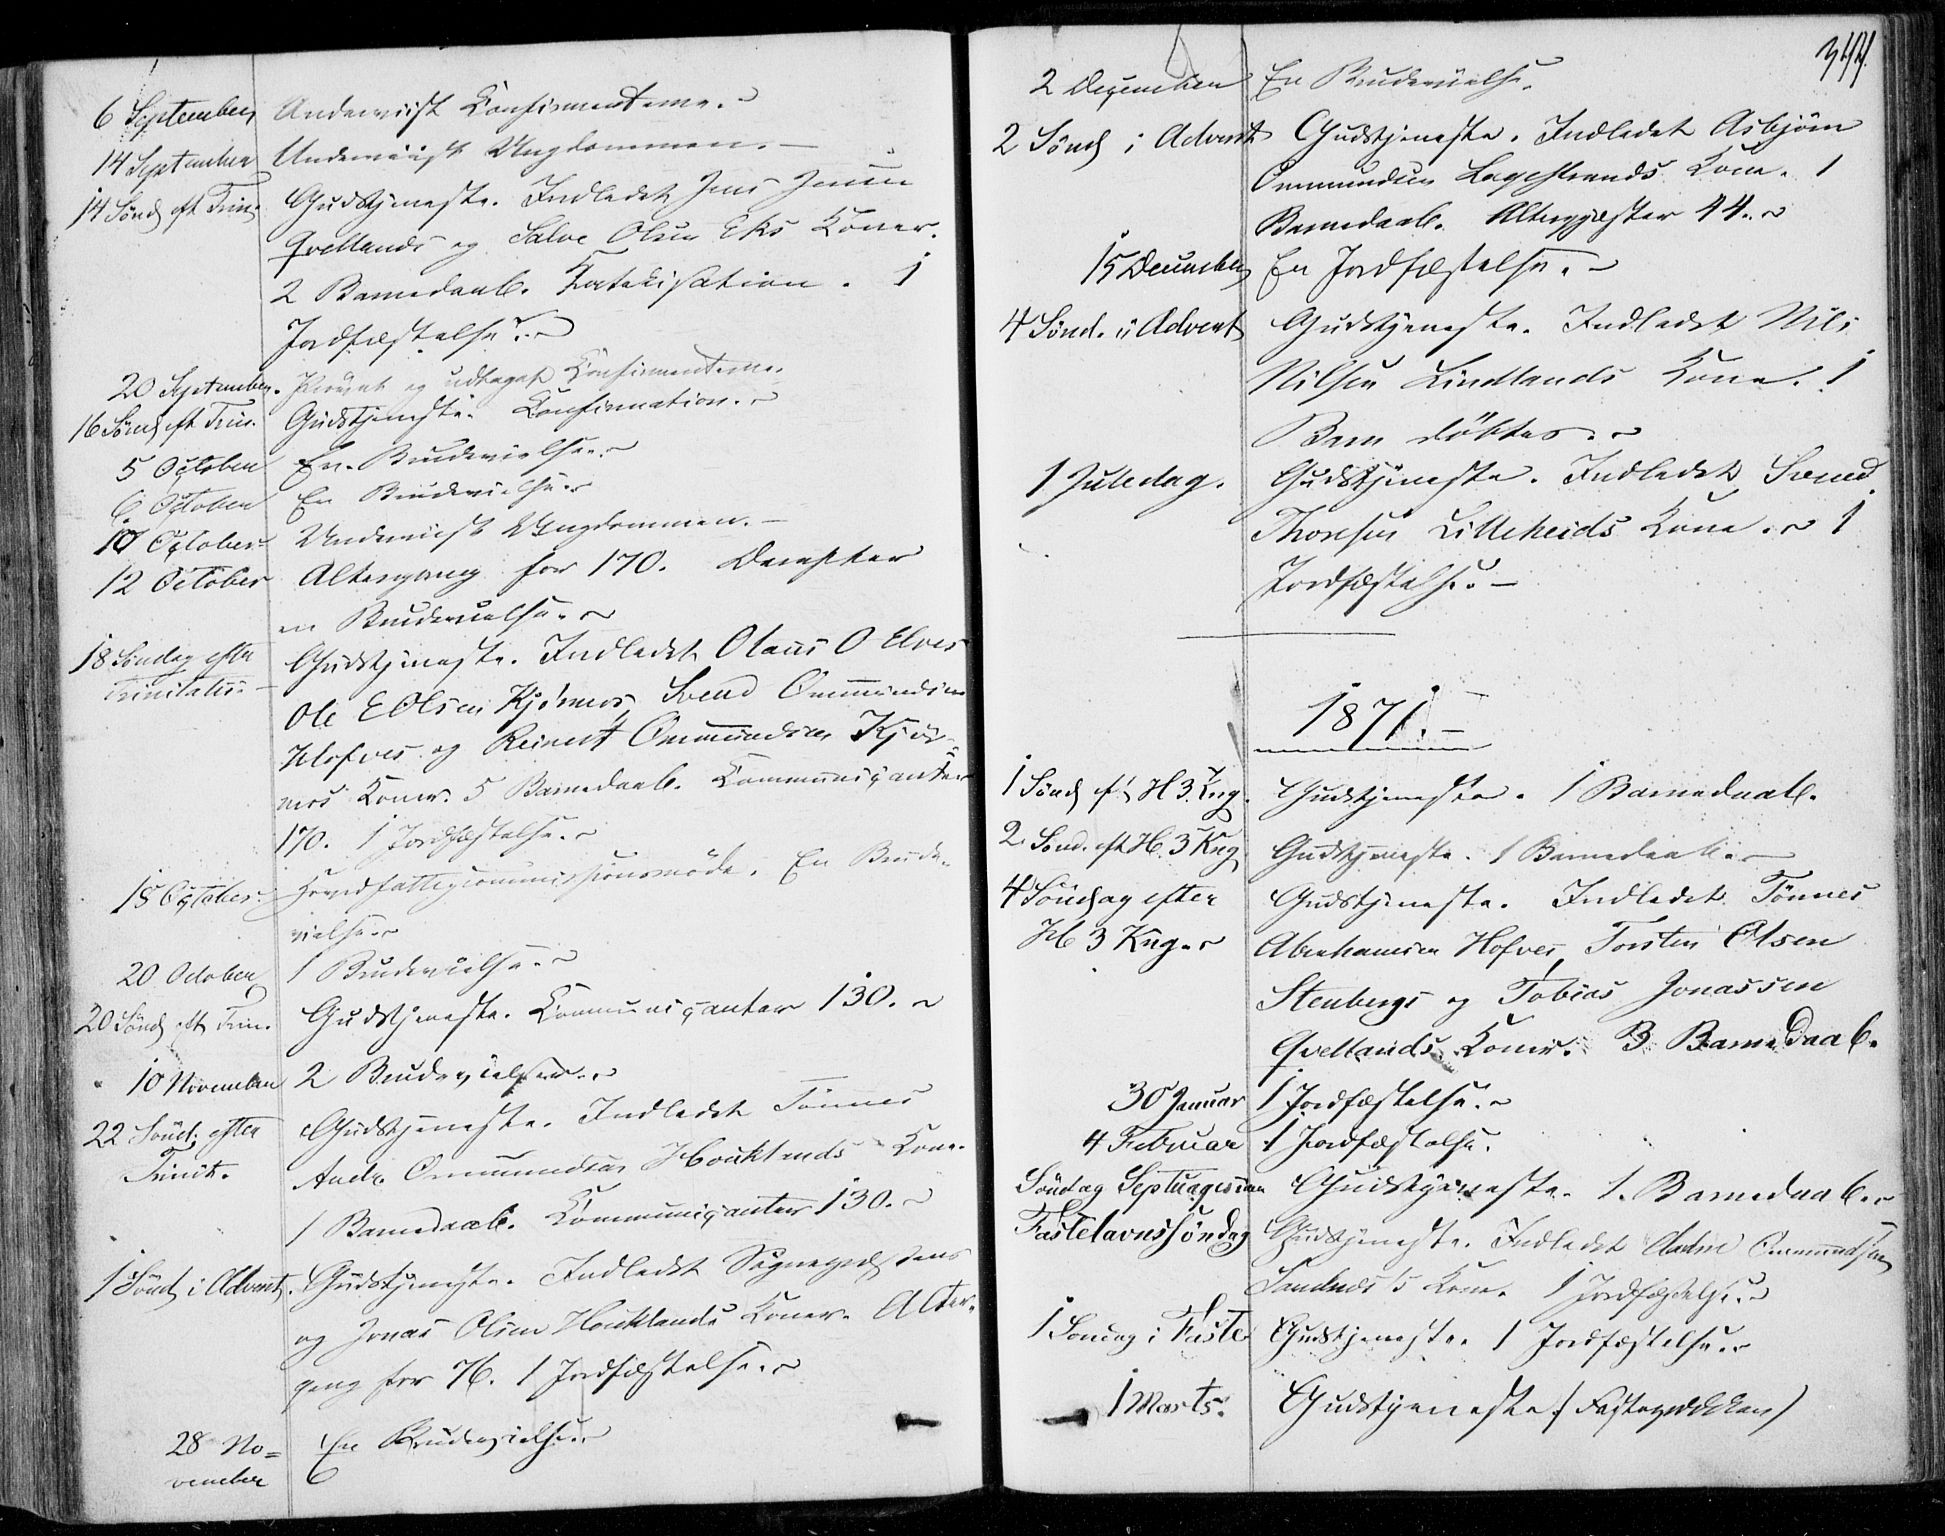 6 September Underviist Konfirmanterne.
14 September Underviist Ungdommen. —
14 Sönd eft Trin. Gudstjeneste. Indledet Jens Jensen
Qvellands og Salve Olsen Eks Koner.
2 Barnedaab. Katekisation. 1
Jordfæstelse.
20 September. Prøvet og udtaget Konfirmanterne.
16 Sönd eft Trin. Gudstjeneste. Konfirmation.
5 October En Brudevielse.
6 October En Brudevielse.
10 October Underviist Ungdommen. —
12 October Altergang for 170. Derefter
en Brudevielse.
18 Söndag efter Gudstjeneste. Indledet Olaus O Elves
Trinitatis. — Ole E Olsen Kjörmos, Svend Ommundsen
Hofves og Reinert Ommundsen Kjör-
mos Koner. 5 Barnedaab. Kommunicanter
170. 1 Jordfæstelse.
18 October. Hovedfattigcommissionsmöde. En Brude-
vielse.
20 October 1 Brudevielse.
20 Sönd eft Trin. Gudstjeneste. Kommunicanter 130.
10 November 2 Brudevielser.
22 Sönd. efter Gudstjeneste. Indledet Tönnes
Trinit. Andr. Ommundsen Houklands Kone.
1 Barnedaab. Kommunicanter 130.
1 Sönd i Advent. Gudstjeneste. Indledet Sognepræstens
og Jonas Olsen Houklands Koner. Alter-
gang for 76. 1 Jordfæstelse.
28 No= En Brudevielse.
vember
344.
2 December En Brudevielse.
2 Sönd i Advent Gudstjeneste. Indledet Asbjörn
Ommundsen Lagestrands Kone. 1
Barnedaab. Altergjæster 44.
15 December En Jordfæstelse. —
4 Sönd. i Advent Gudstjeneste. Indledet Nils
Nilsen Lindlands Kone. 1
Barn döbtes.
1 Juledag. Gudstjeneste. Indledet Svend
Thorsen Lilleheids Kone. 1
Jordfæstelse. —
1871. —
1 Sönd eft H 3 Kng. Gudstjeneste. 1 Barnedaab.
2 Sönd. eft H. 3 Kng Gudstjeneste. 1 Barnedaab.
4 Söndag efter Gudstjeneste. Indledet Tönnes
H 3 Kng. Abrahamsen Hofves, Torsten Olsen
Stenbergs og Tobias Jonassen
Qvellands Koner. 3 Barnedaab.
30 Januar 1 Jordfæstelse.
4 Februar 1 Jordfæstelse.
Söndag Septuagesima Gudstjeneste. 1. Barnedaab.
Fastelavnssöndag Gudstjeneste. Indledet Ommundsen
Sandnes's Kone. 1 Jordfæstelse.
1 Söndag i Faste Gudstjeneste. 1 Jordfæstelse.
1 Marts. Gudstjeneste (Fasteprædiken)